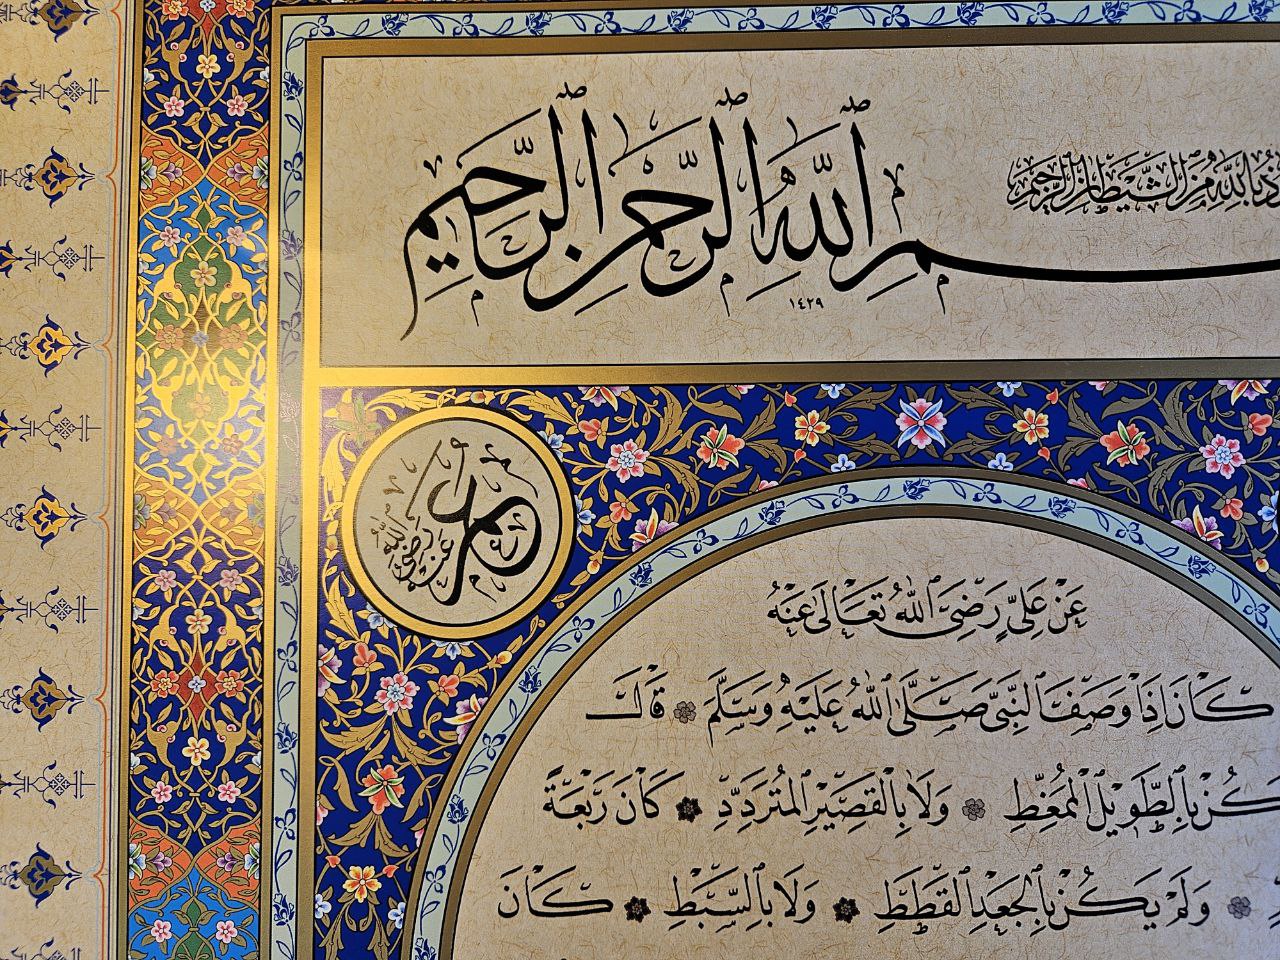 بِاللّٰهِ مِنَ الشَّيْطَانِ الرَّجِيمِ
بسم ٱللّٰهِ ٱلرَّحْمٰنِ ٱلرَّحِيمِ
١٤٢٩
عمر رضي الله عنه
عَنْ عَلِيٍّ رَضِيَ اللّٰهُ تَعَالٰى عَنْهُ
كَانَ إِذَا وَصَفَ النَّبِيَّ صَلَّى اللّٰهُ عَلَيْهِ وَسَلَّمَ قَالَ
يَكُنْ بِالطَّوِيلِ الْمُمَغَّطِ وَلَا بِالْقَصِيرِ الْمُتَرَدِّدِ كَانَ رَبْعَةً
وَلَمْ يَكُنْ بِالْجَعْدِ الْقَطَطِ وَلَا بِالسَّبْطِ كَانَ